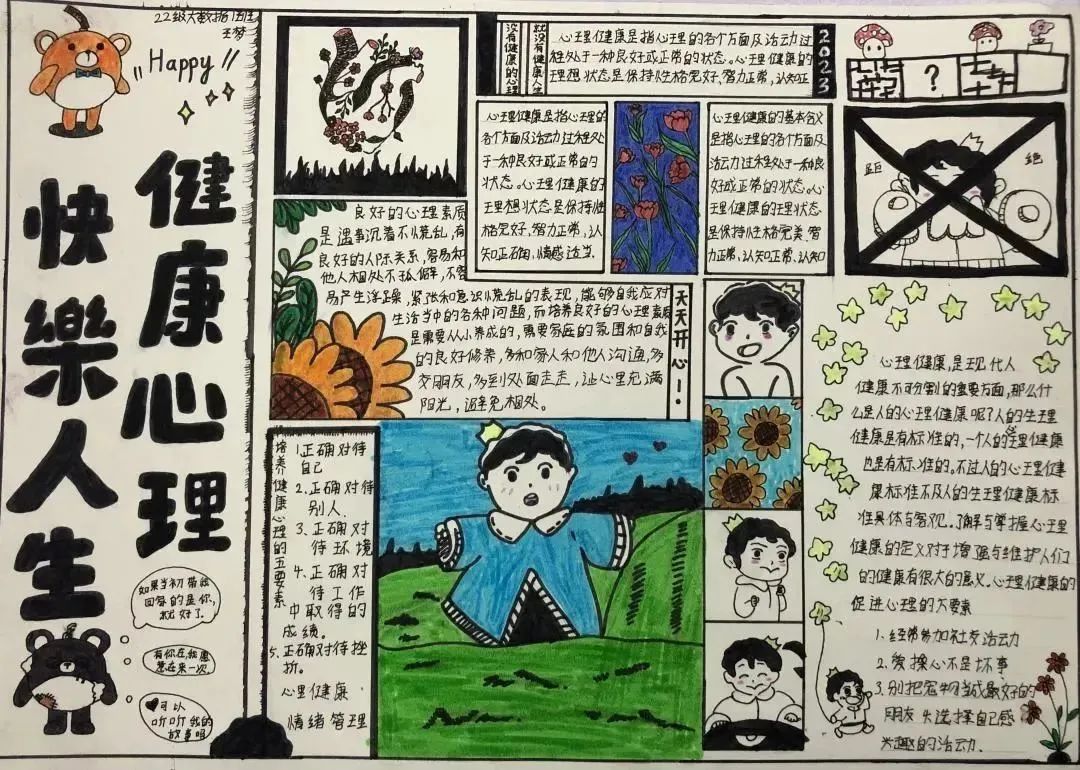 22级大数据1班
王梦
Happy
健康心理
快樂人生
如果当初带我
回家的是你,
就好了.
有你在,我愿
意在来一次.
可以
听听我的
故事吗
没有健康的心理
就没有健康人生
心理健康是指心理的各个方面及活动过
程处于一种良好或正常的状态。心理健康的
理想状态是保持性格完好、智力正常,认知正
2023
?
心理健康是指心理的
各个方面及活动过程处
于一种良好或正常的
状态。心理健康的
理想状态是保持性
格完好、智力正常、认
知正确,情感适当.
心理健康的基本含义
是指心理的各个方面及
活动过程处于一种良
好或正常的状态。心
理健康的理状态
是保持性格完美、智
力正常、认知正常、认知
拒
绝
良好的心理素质
是遇事沉着不慌乱,有
良好的人际关系,容易和
他人相处不孤僻,不容
易产生浮躁,紧张和意识慌乱的表现,能够自我应对
生活当中的各种问题,而培养良好的心理素质
是需要从小养成的,需要家庭的氛围和自我
的良好修养,多和家人和他人沟通,多
交朋友,多到处面走走,让心里充满
阳光,避免相处。
天天开心!
培养健康心理的五要素
1.正确对待
自己
2.正确对待
别人.
3.正确对
待环境
4.正确对
待工作
中取得的
成绩。
5.正确对待挫
折。
心里健康
情绪管理
心理健康,是现代人
健康不可分割的重要方面,那么什
么是人的心理健康呢?人的生理
健康是有标准的,一个人的理健康
也是有标准的,不过人的心理健
康标准不及人的生理健康标
准具体与客观.了解与掌握心理
健康的定义对于增强与维护人们
的健康有很大的意义.心理健康的
促进心理的六要素
1.经常参加社交活动
2.操心不是坏事
3.别把宠物当成最好的
朋友 4.选择自己感
兴趣的活动.